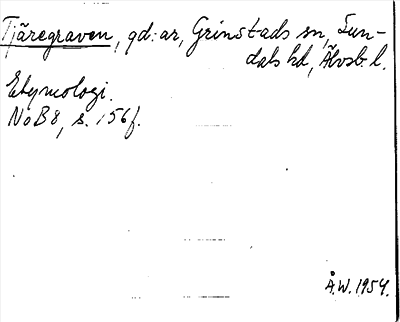 Tjäregraven, gd:ar, Grinstads sn, Sun-
dals hd, Älvsb. l.
Etymologi.
NoB 8, s. 156f.
Å.W. 1954.